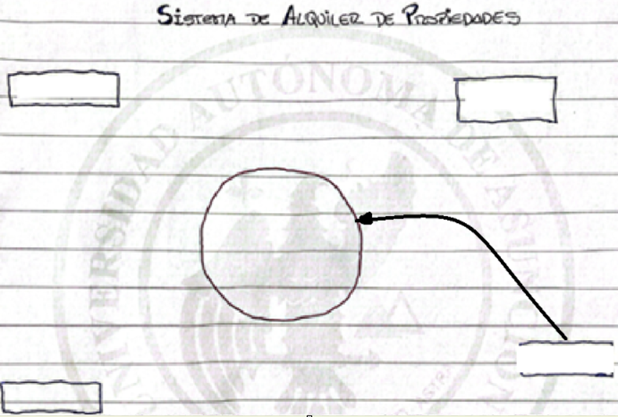 Sistema de Alquiler de Propiedades
UNIVERSIDAD AUTÓNOMA DE ASUNCIÓN